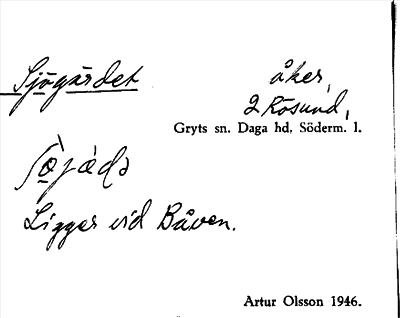 Sjögärdet
åker,
2 Rösund,
Gryts sn. Daga hd, Söderm. l.
Ligger vid Båven.
Artur Olsson 1946.